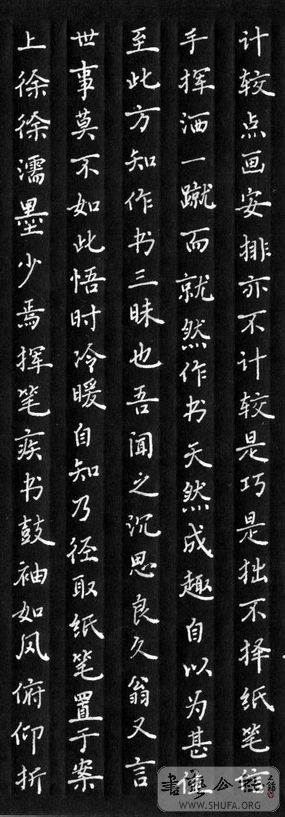 计较点画安排亦不计较是巧是拙不择纸笔信
手挥洒一蹴而就然作书天然成趣自以为甚佳
至此方知作书三昧也吾闻之沉思良久翁又言
世事莫不如此悟时冷暖自知乃径取纸笔置于案
上徐徐濡墨少焉挥笔疾书鼓袖如风俯仰折
書艺公社
WWW.SHUFA.ORG